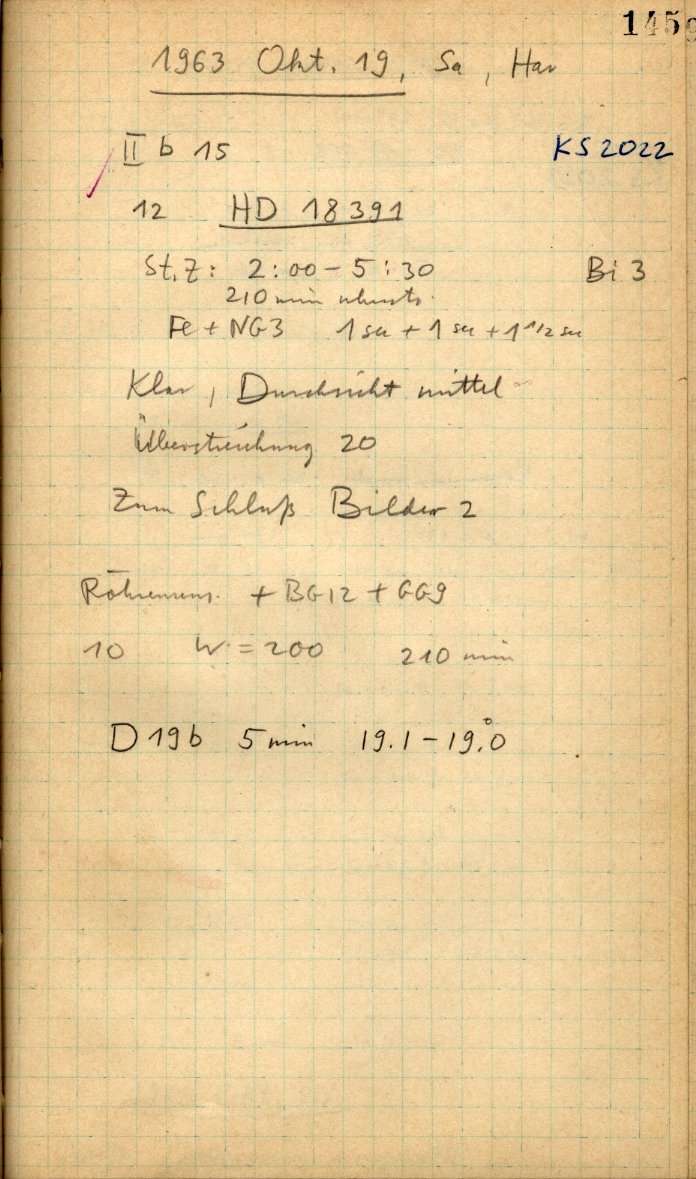 145
1963 Okt. 19, Sa, Har
II b 15 KS 2022
12 HD 18391
St.Z: 2:00 - 5:30 Bi 3
210 min
Fe + NG3 1 sec + 1 sec + 1 1/2 sec
Klar, Durchsicht mittel
Überstreichung 20
Zum Schluß Bilder 2
+ BG12 + GG9
10 W = 200 210 min
D19b 5 min 19.1 - 19.°0